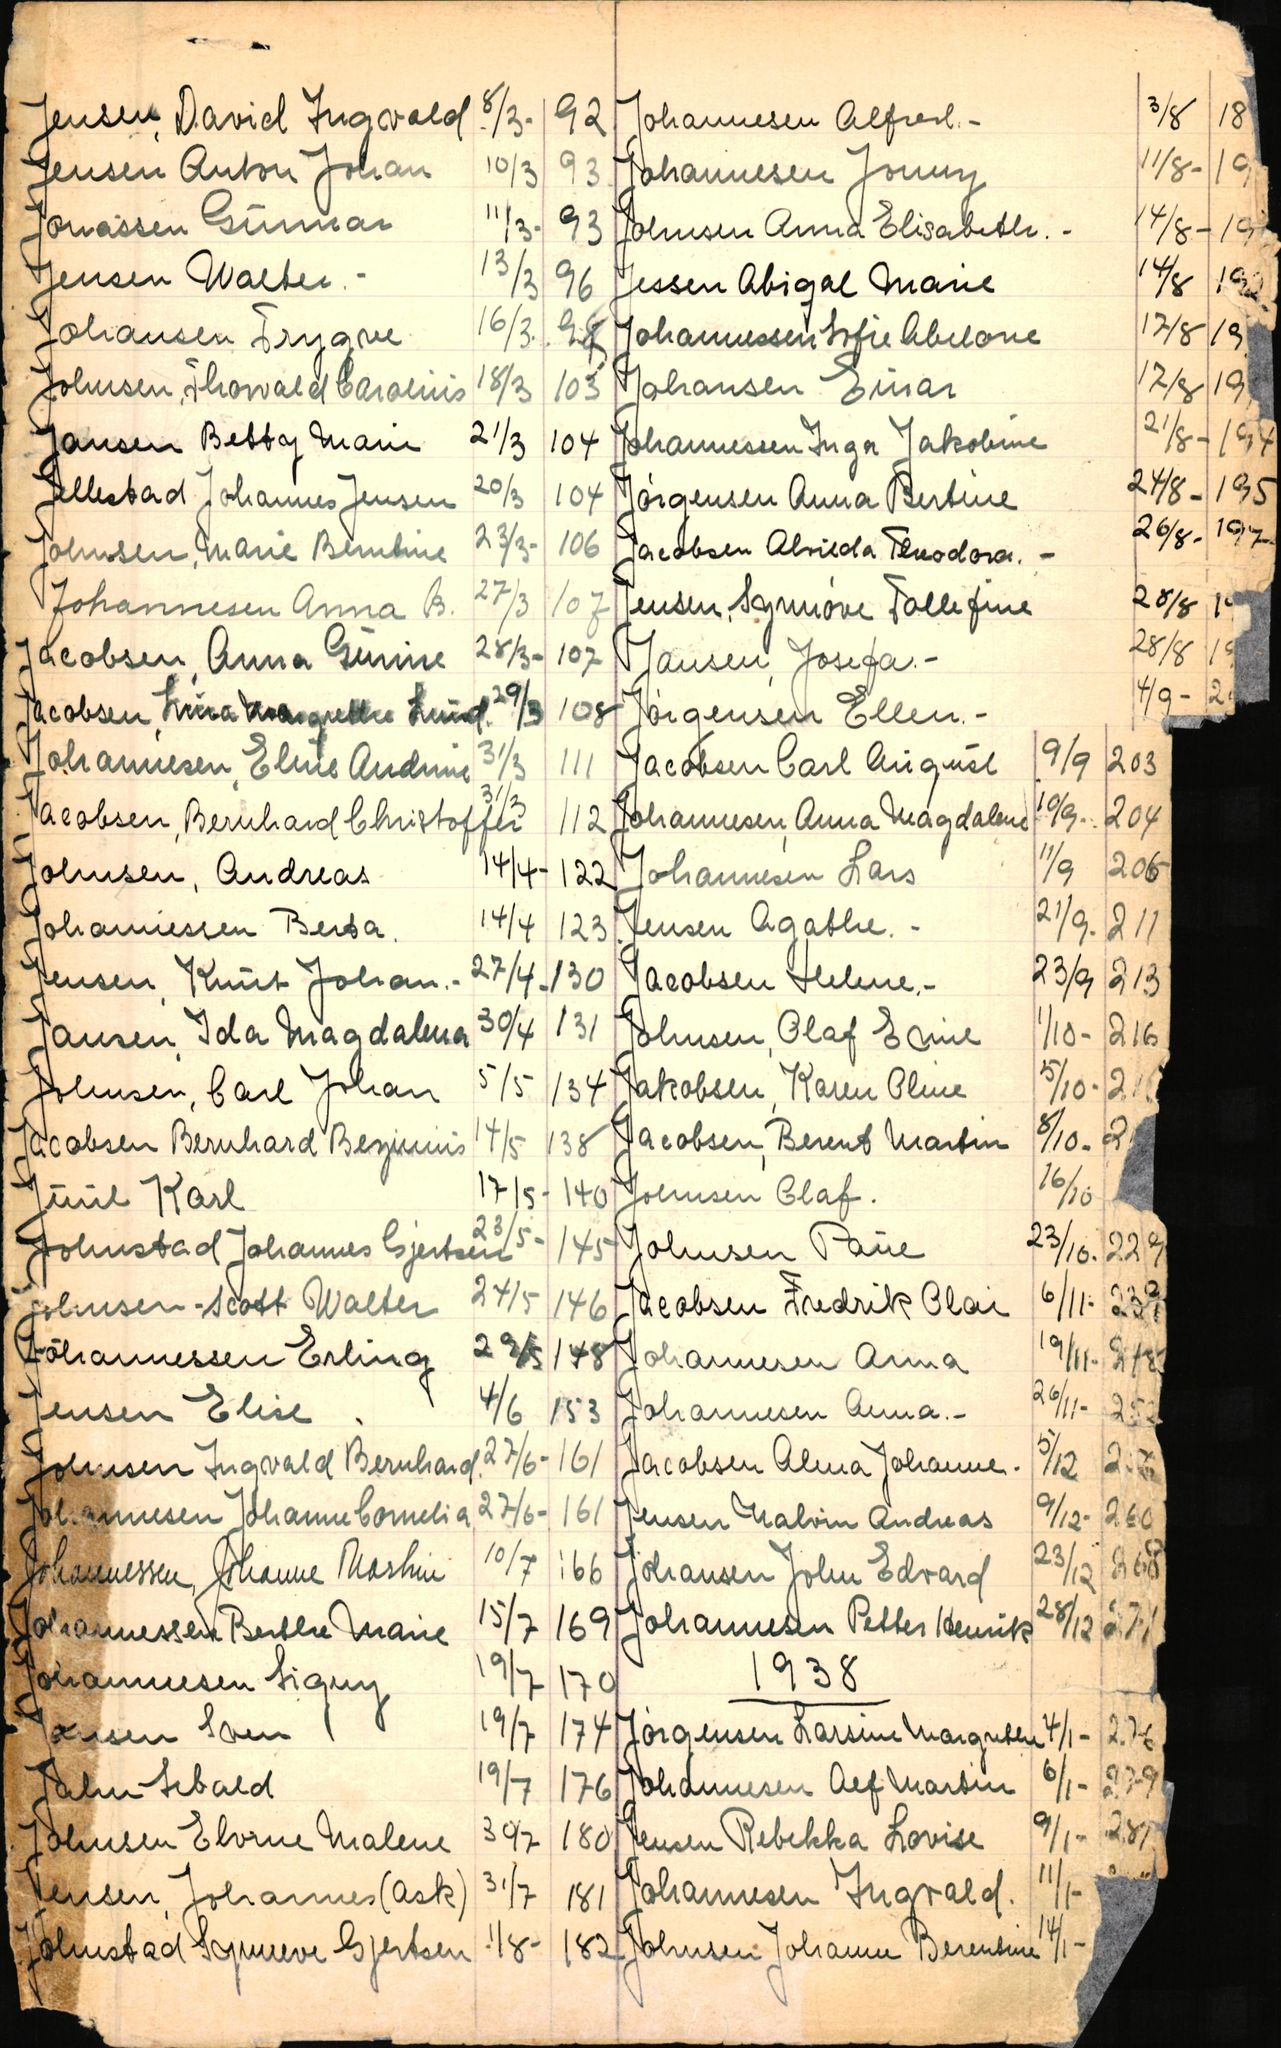 Jensen, David Ingvald 8/3- 92
Jensen Anton Johan 10/3 93
Jonassen Gunnar 11/3- 93
Jensen Walter.- 13/3 96
Johansen Trygve 16/3.
Johnsen, Thorvald Carolius 18/3 103
Jansen Betty Marie 21/3 104
Jellestad Johannes Jensen 20/3 104
Johnsen, Marie Berntine 23/3- 106
Johannesen Anna B. 27/3 107
Jacobsen, Anna Gurine 28/3- 107
Jacobsen, Lund. 29/3 108
Johannesen, Eline Andrine 31/3 111
Jacobsen, Bernhard Christoffer 31/3 112
Johnsen, Andreas 14/4- 122
Johannessen Berta. 14/4 123
Jensen, Knut Johan.- 27/4- 130
Jansen, Ida Magdalena 30/4 131
Johnsen, Carl Johan 5/5 134
Jacobsen Bernhard 14/5 138
Juul Karl 17/5- 140
Johnstad Johannes Gjertsen 23/5- 145
Johnsen-Scott Walter 24/5 146
Johannessen Erling 29/5 148
Jensen Elise 4/6 153
Johnsen Ingvald Bernhard. 27/6- 161
Johannesen Johanne Cornelia 27/6- 161
Johannessen, Johanne 10/7 166
Johannessen Berthe Marie 15/7 169
Johannesen Signy 19/7 170
Jensen Sven 19/7 174
Jahn Sebald 19/7 176
Johnsen Malene 30/7 180
Jensen, Johannes (Ask) 31/7 181
Johnstad Synneve Gjertsen 1/8- 182
Johannesen Alfred.- 3/8 18
Johannesen Jonny 11/8- 19
Johnsen Anna Elisabeth.- 14/8- 19
Jessen Abigal Marie 14/8 192
Johannessen Sofie Abelone 17/8 19
Johansen Einar 17/8 19
Johannessen Inga Jakobine 21/8- 194
Jörgensen Anna Bertine 24/8- 195
Jacobsen Alvilda Theodora.- 26/8- 197
Jensen, Synnöve Tollefine 28/8 19
Jansen, Josefa.- 28/8 19
Jörgensen Ellen.- 4/9- 2
Jacobsen Carl August 9/9 203
Johannesen, Anna Magdalene 10/9- 204
Johannesen Lars 11/9 206
Jensen Agathe.- 21/9- 211
Jacobsen Helene.- 23/9 213
Johnsen, Olaf Emil 1/10- 216
Jakobsen, Karen Oline 5/10- 21
Jacobsen, Berent Martin 8/10- 2
Johnsen Olaf. 16/10
Johnsen 23/10- 229
Jacobsen Fredrik Olai 6/11- 239
Johannesen Anna 19/11- 248
Johannesen Anna.- 26/11- 252
Jacobsen Alma Johanne. 5/12
Jensen Malvin Andreas 9/12- 260
Johansen John Edvard 23/12 268
Johannesen Petter Henrik 28/12 271
1938
Jörgensen Larsine Margrethe 4/1- 276
Johannesen Alf Martin 6/1- 279
Jensen Rebekka Lovise 9/1- 281
Johannesen Ingvald. 11/1-
Johnsen Johanne Berentine 14/1-